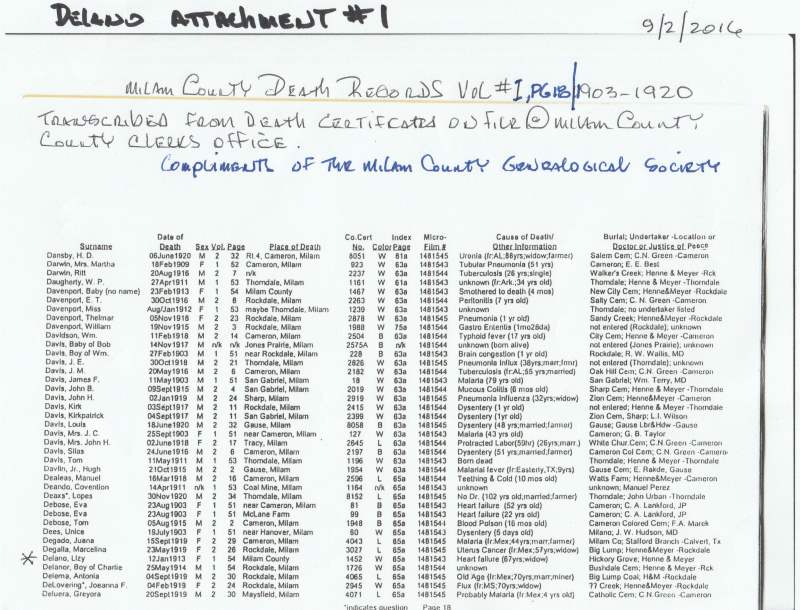 DELANO ATTACHMENT #1
9/2/2016
MILAM COUNTY DEATH RECORDS VOL #I, PG18/1903-1920
TRANSCRIBED FROM DEATH CERTIFICATES ON FILE @ MILAM COUNTY
COUNTY CLERKS OFFICE.
COMPLIMENTS OF THE MILAM COUNTY GENEALOGICAL SOCIETY
Date of Co.Cert Index Micro- Cause of Death/ Burial; Undertaker -Location or
Surname Death Sex Vol. Page Place of Death No. Color Page Film # Other Information Doctor or Justice of Peace
Dansby, H. D. 06June1920 M 2 32 Rt.4, Cameron, Milam 8051 W 61a 1481545 Uremia (fr:AL;88yrs;widow;farmer) Salem Cem; C.N. Green -Cameron
Darwin, Mrs. Martha 18Feb1909 F 1 52 Cameron, Milam 923 W 63a 1481543 Tubular Pneumonia (51 yrs) Cameron; E. E. Best
Darwin, Ritt 20Aug1916 M 2 7 n/k 2237 W 63a 1481544 Tuberculosis (26 yrs;single) Walker's Creek; Henne & Meyer -Rck
Daugherty, W. P. 27Apr1911 M 1 53 Thorndale, Milam 1161 W 61a 1481543 unknown (fr:Ark.;34 yrs old) Thorndale; Henne & Meyer -Thorndale
Davenport, Baby (no name) 23Feb1913 F 1 54 Milam County 1467 W 63a 1481543 Smothered to death (4 mos) New City Cem; Henne&Meyer -Rockdale
Davenport, E. T. 30Oct1916 M 2 8 Rockdale, Milam 2263 W 63a 1481544 Peritonitis (7 yrs old) Salty Cem; C.N. Green -Cameron
Davenport, Miss Aug/Jan1912 F 1 53 maybe Thorndale, Milam 1239 W 63a 1481543 unknown Thorndale; no undertaker listed
Davenport, Thelmar 05Nov1918 F 2 23 Rockdale, Milam 2878 W 63a 1481545 Pneumonia (1 yr old) Sandy Creek; Henne&Meyer -Rockdale
Davenport, William 19Nov1915 M 2 3 Rockdale, Milam 1988 W 75a 1481544 Gastro Enteritis (1mo28da) not entered (Rockdale); unknown
Davidson, Wm. 11Feb1918 M 2 14 Cameron, Milam 2504 B 63a 1481544 Typhoid fever (17 yrs old) City Cem; Henne & Meyer -Cameron
Davis, Baby of Bob 14Nov1917 M n/k n/k Jones Prairie, Milam 2575A B n/k 1481544 unknown (born alive) not entered (Jones Prairie); unknown
Davis, Boy of Wm. 27Feb1903 M 1 51 near Rockdale, Milam 228 B 63a 1481543 Brain congestion (1 yr old) Rockdale; R. W. Wallis, MD
Davis, J. E. 30Oct1918 M 2 21 Thorndale, Milam 2826 W 63a 1481545 Pneumonia Influx (38yrs;marr;fmr) not entered (Thorndale); unknown
Davis, J. M. 20May1916 M 2 6 Cameron, Milam 2182 W 63a 1481544 Tuberculosis (fr:AL;55 yrs;married) Oak Hill Cem; C.N. Green -Cameron
Davis, James F. 11May1903 M 1 51 San Gabriel, Milam 18 W 63a 1481543 Malaria (79 yrs old) San Gabriel; Wm. Terry, MD
Davis, John B. 09Sept1915 M 2 4 San Gabriel, Milam 2019 W 63a 1481544 Mucous Colitis (6 mos old) Sharp Cem; Henne & Meyer -Thorndale
Davis, John H. 02Jan1919 M 2 24 Sharp, Milam 2919 W 63a 1481545 Pneumonia Influenza (32yrs;widow) Zion Cem; Henne&Meyer -Cameron
Davis, Kirk 03Sept1917 M 2 11 Rockdale, Milam 2415 W 63a 1481544 Dysentery (1 yr old) not entered; Henne & Meyer -Thorndale
Davis, Kirkpatrick 04Sept1917 M 2 11 San Gabriel, Milam 2399 W 63a 1481544 Dysentery (1yr old) Zion Cem, Sharp; L.I. Wilson
Davis, Louis 18June1920 M 2 32 Gause, Milam 8058 B 63a 1481545 Dysentery (48 yrs;married;farmer) Gause; Gause Lbr&Hdw -Gause
Davis, Mrs. J. C. 25Sept1903 F 1 51 near Cameron, Milam 127 W 63a 1481543 Malaria (43 yrs old) Cameron; G. B. Taylor
Davis, Mrs. John H. 02June1918 F 2 17 Tracy, Milam 2645 L 63a 1481544 Protracted Labor(59hr) (26yrs;marr.) White Chur Cem; C.N. Green -Cameron
Davis, Silas 24June1916 M 2 6 Cameron, Milam 2197 B 63a 1481544 Dysentery (51 yrs;married;farmer) Cameron Col Cem; C.N. Green -Cameron
Davis, Tom 11May1911 M 1 53 Thorndale, Milam 1196 W 63a 1481543 Born dead Thorndale; Henne & Meyer -Thorndale
Davlin, Jr., Hugh 21Oct1915 M 2 2 Gause, Milam 1954 W 63a 1481544 Malarial fever (fr:Easterly,TX;9yrs) Gause Cem; E. Rakde, Gause
Dealeas, Manuel 16Mar1918 M 2 16 Cameron, Milam 2596 L 65a 1481544 Teething & Cold (10 mos old) Watts Farm; Henne&Meyer -Cameron
Deando, Covention 14Apr1911 n/k 1 53 Coal Mine, Milam 1164 n/k 65a 1481543 unknown unknown; Manuel Perez
Deaxs*, Lopes 30Nov1920 M 2 34 Thorndale, Milam 8152 L 65a 1481545 No Dr. (102 yrs old,married;farmer) Thorndale; John Urban -Thorndale
Debose, Eva 23Aug1903 F 1 51 near Cameron, Milam 81 B 65a 1481543 Heart failure (52 yrs old) Cameron; C. A. Lankford, JP
Debose, Eva 23Aug1903 F 1 51 McLane Farm 99 B 65a 1481543 Heart failure (22 yrs old) Cameron; C. A. Lankford, JP
Debose, Tom 05Aug1915 M 2 2 Cameron, Milam 1948 B 65a 1481544 Blood Poison (16 mos old) Cameron Colored Cem; F.A. Marek
Dees, Unice 18July1903 F 1 51 near Hanover, Milam 60 W 65a 1481543 Dysentery (5 days old) Milano; J. W. Hudson, MD
Degado, Juana 15Sept1919 F 2 29 Cameron, Milam 4043 L 65a 1481545 Malaria (fr:Mex;44yrs;marr;farmer) Milam Co; Stafford Branch -Calvert, Tx
Degalla, Marcelina 23May1919 F 2 26 Rockdale, Milam 3027 L 65a 1481545 Uterus Cancer (fr:Mex;57yrs;widow) Big Lump; Henne&Meyer -Rockdale
* Delano, Lizy 12Jan1913 F 1 54 Milam County 1452 W 65a 1481543 Heart failure (67yrs;widow) Hickory Grove; Henne & Meyer
Delanor, Boy of Charlie 25May1914 M 1 54 Rockdale, Milam 1726 W 65a 1481544 unknown Bushdale Cem; Henne & Meyer -Rck
Delema, Antonia 04Sept1919 M 2 30 Rockdale, Milam 4065 L 65a 1481545 Old Age (fr:Mex;70yrs;marr;miner) Big Lump Coal; H&M -Rockdale
DeLovering*, Joeanna F. 04Feb1919 F 2 24 Rockdale, Milam 2945 W 65a 1481545 Flux (fr:MS;70yrs;widow) ?? Creek; Henne&Meyer -Rockdale
Deluera, Greyora 20Sept1919 M 2 30 Maysfield, Milam 4071 L 65a 1481545 Probably Malaria (fr:Mex;4 yrs old) Catholic Cem; C.N.Green -Cameron
*indicates question Page 18